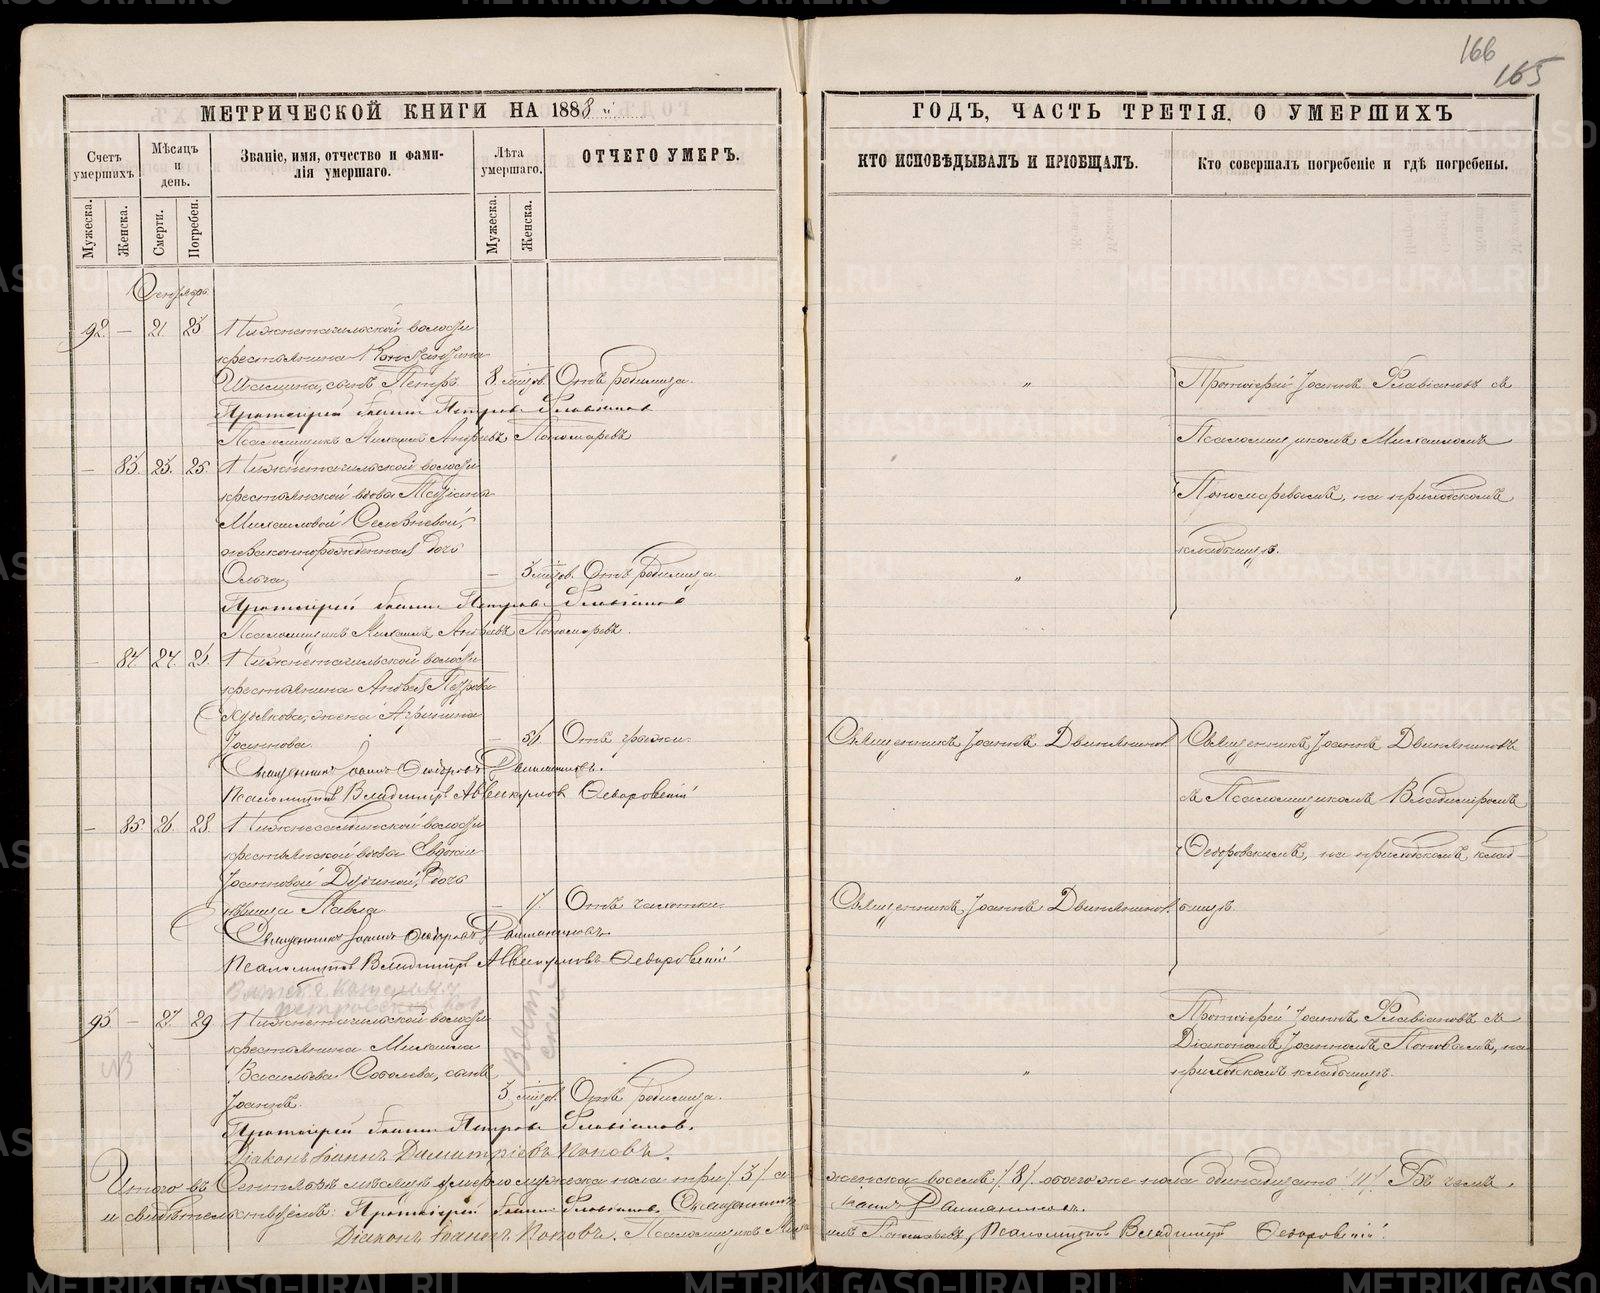 166
165
МЕТРИЧЕСКОЙ КНИГИ НА 1883 й
ГОДЪ, ЧАСТЬ ТРЕТІЯ, О УМЕРШИХЪ
Счетъ умершихъ
Мѣсяцъ и день.
Званіе, имя, отчество и фами-
лія умершаго.
Лѣта умершаго.
ОТЧЕГО УМЕРЪ.
КТО ИСПОВѢДЫВАЛЪ И ПРІОБЩАЛЪ.
Кто совершалъ погребеніе и гдѣ погребены.
Мужеска.
Женска.
Смерти.
Погребен.
Мужеска.
Женска.
Сентябрь.
92. — 21. 23 Нижнетагильской волости
крестьянина Константина
Шамина, сынъ Петръ 8 мѣсяц. Отъ родимца. "
Протоіерей Іоаннъ Петровъ Флавіановъ
Псаломщикъ Михаилъ Андреевъ Пономаревъ
Протоіерей Іоаннъ Флавіановъ съ
Псаломщикомъ Михаиломъ
Пономаревымъ, на приходскомъ
кладбищѣ.
— 83. 23. 25. Нижнетагильской волости
крестьянской вдовы Татіаны
Михаиловой
незаконнорожденная дочь
Ольга — 3 мѣсяц. Отъ родимца. "
Протоіерей Іоаннъ Петровъ Флавіановъ
Псаломщикъ Михаилъ Андреевъ Пономаревъ.
— 84. 24. 25. Нижнетагильской волости
крестьянина Андрея Петрова
жена Агрипина
Іоаннова. — Отъ грыжи. Священникъ Іоаннъ
Священникъ Іоаннъ Ѳедоровъ
Псаломщикъ Владиміръ Аввакумовъ Ѳедоровскій
Священникъ Іоаннъ
съ Псаломщикомъ Владиміромъ
Ѳедоровскимъ, на приходскомъ клад-
бищѣ.
— 85. 26. 28. Нижнесалдинской волости
крестьянской вдовы Евдокіи
Іоанновой дочь
дѣвица Павла — Отъ чахотки. Священникъ Іоаннъ
Священникъ Іоаннъ Ѳедоровъ
Псаломщикъ Владиміръ Аввакумовъ Ѳедоровскій
93. — 27. 29 Нижнетагильской волости
крестьянина Михаила
Васильева Соболева, сынъ
Іоаннъ. 3 мѣсяц. Отъ родимца. "
Протоіерей Іоаннъ Петровъ Флавіановъ.
Діаконъ Іоаннъ Димитріевъ Поповъ.
Протоіерей Іоаннъ Флавіановъ съ
Діакономъ Іоанномъ Поповымъ, на
приходскомъ кладбищѣ.
NB
Итого въ Сентябрѣ мѣсяцѣ умерло мужеска пола три /3/ а женска восемь /8/ обоего же пола одинадцать /11/ Въ чемъ
и свидѣтельствуемъ: Протоіерей Іоаннъ Флавіановъ. Священникъ Іоаннъ
Діаконъ Іоаннъ Поповъ. Псаломщикъ Михаилъ Пономаревъ, Псаломщикъ Владиміръ Ѳедоровскій.
METRIKI.GASO-URAL.RU